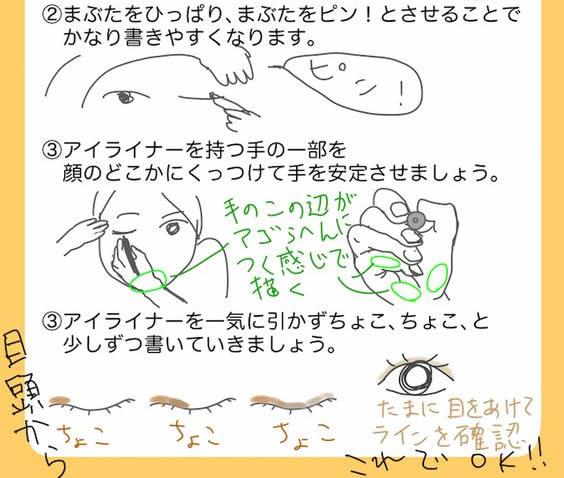 ②まぶたをひっぱり、まぶたをピン！とさせることで
かなり書きやすくなります。
ピン！
③アイライナーを持つ手の一部を
顔のどこかにくっつけて手を安定させましょう。
手のこの辺が
アゴらへんに
つく感じで
描く
③アイライナーを一気に引かずちょこ、ちょこ、と
少しずつ書いていきましょう。
目頭から
ちょこ
ちょこ
ちょこ
たまに目をあけて
ラインを確認
これでOK!!